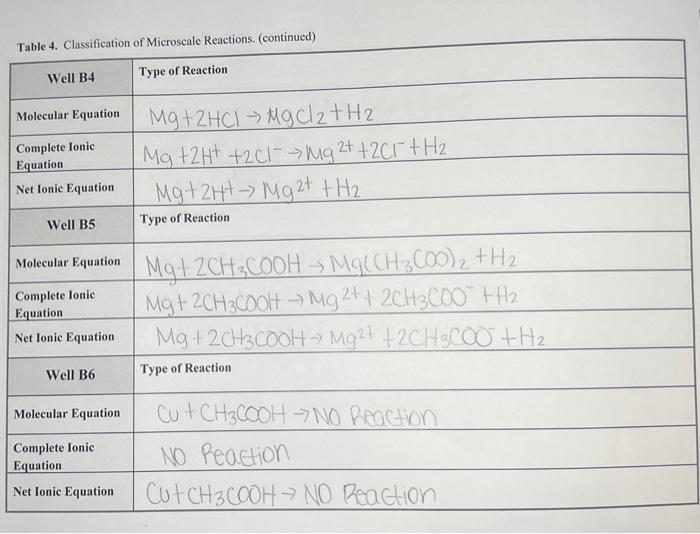 Table 4. Classification of Microscale Reactions. (continued)
Well B4 Type of Reaction
Molecular Equation Mg+2HCl → MgCl2+H2
Complete Ionic Equation Mg +2H+ +2Cl- → Mg2+ +2Cl- +H2
Net Ionic Equation Mg+2H+ → Mg2+ +H2
Well B5 Type of Reaction
Molecular Equation Mg+ 2CH3COOH → Mg(CH3COO)2 +H2
Complete Ionic Equation Mg+ 2CH3COOH → Mg2+ + 2CH3COO- +H2
Net Ionic Equation Mg +2CH3COOH → Mg2+ +2CH3COO- +H2
Well B6 Type of Reaction
Molecular Equation Cu + CH3COOH → NO Reaction
Complete Ionic Equation NO Reaction
Net Ionic Equation Cu+CH3COOH → NO Reaction